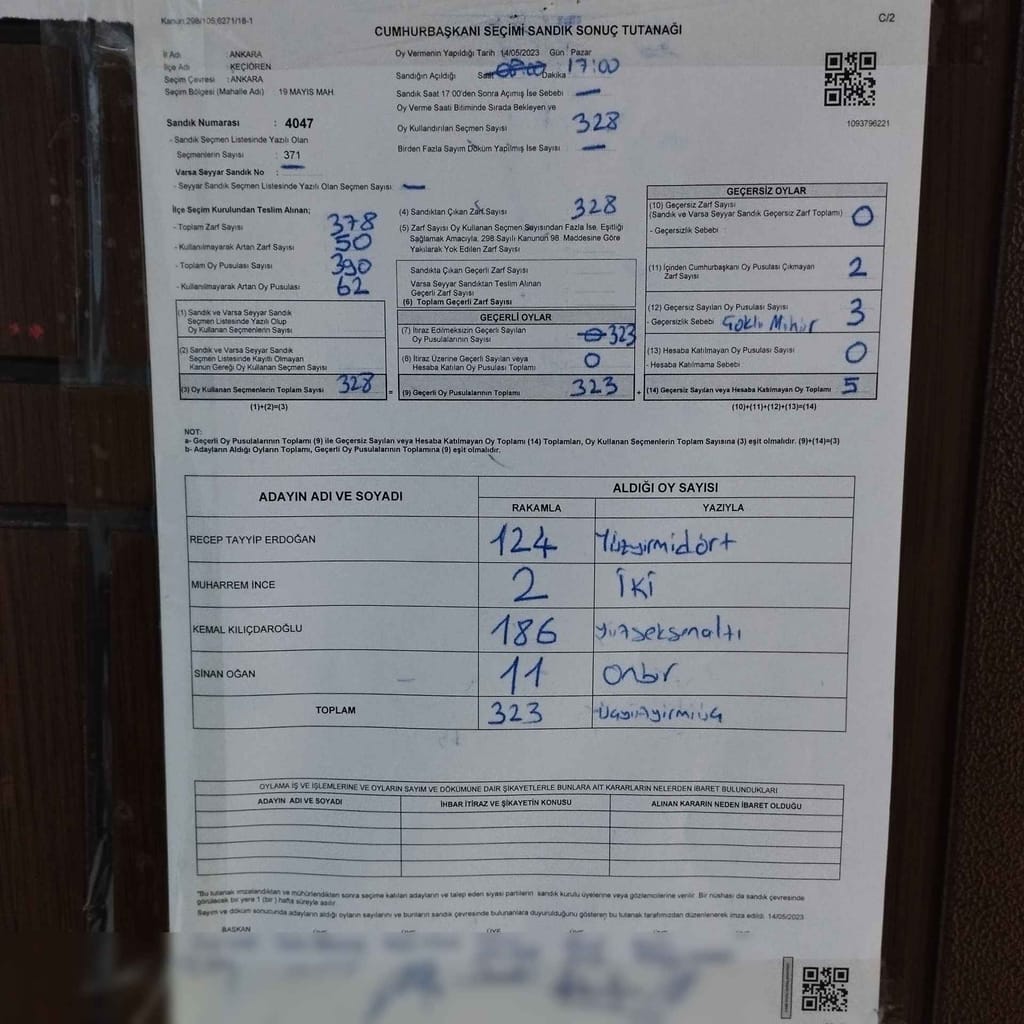 Kanun:298/105,6271/18-1
C/2
CUMHURBAŞKANI SEÇİMİ SANDIK SONUÇ TUTANAĞI
İl Adı : ANKARA
İlçe Adı : KEÇİÖREN
Seçim Çevresi : ANKARA
Seçim Bölgesi (Mahalle Adı) : 19 MAYIS MAH.
Oy Vermenin Yapıldığı Tarih 14/05/2023 Gün Pazar
Sandığın Açıldığı Saat Dakika 17:00
Sandık Saat 17:00'den Sonra Açımış İse Sebebi —
Oy Verme Saati Bitiminde Sırada Bekleyen ve
Oy Kullandırılan Seçmen Sayısı 328
Birden Fazla Sayım Döküm Yapılmış İse Sayısı —
1093796221
Sandık Numarası : 4047
- Sandık Seçmen Listesinde Yazılı Olan
Seçmenlerin Sayısı : 371
Varsa Seyyar Sandık No : —
- Seyyar Sandık Seçmen Listesinde Yazılı Olan Seçmen Sayısı —
İlçe Seçim Kurulundan Teslim Alınan;
- Toplam Zarf Sayısı 378
- Kullanılmayarak Artan Zarf Sayısı 50
- Toplam Oy Pusulası Sayısı 390
- Kullanılmayarak Artan Oy Pusulası 62
(1) Sandık ve Varsa Seyyar Sandık
Seçmen Listesinde Yazılı Olup
Oy Kullanan Seçmenlerin Sayısı
(2) Sandık ve Varsa Seyyar Sandık
Seçmen Listesinde Kayıtlı Olmayan
Kanun Gereği Oy Kullanan Seçmen Sayısı
(3) Oy Kullanan Seçmenlerin Toplam Sayısı 328
(1)+(2)=(3)
(4) Sandıktan Çıkan Zarf Sayısı 328
(5) Zarf Sayısı Oy Kullanan Seçmen Sayısından Fazla İse, Eşitliği
Sağlamak Amacıyla, 298 Sayılı Kanunun 98. Maddesine Göre
Yakılarak Yok Edilen Zarf Sayısı
Sandıkta Çıkan Geçerli Zarf Sayısı
Varsa Seyyar Sandıktan Teslim Alınan
Geçerli Zarf Sayısı
(6) Toplam Geçerli Zarf Sayısı
GEÇERLİ OYLAR
(7) İtiraz Edilmeksizin Geçerli Sayılan
Oy Pusulalarının Sayısı 323
(8) İtiraz Üzerine Geçerli Sayılan veya
Hesaba Katılan Oy Pusulası Toplamı 0
= (9) Geçerli Oy Pusulalarının Toplamı 323
GEÇERSİZ OYLAR
(10) Geçersiz Zarf Sayısı
(Sandık ve Varsa Seyyar Sandık Geçersiz Zarf Toplamı) 0
- Geçersizlik Sebebi :
(11) İçinden Cumhurbaşkanı Oy Pusulası Çıkmayan
Zarf Sayısı 2
(12) Geçersiz Sayılan Oy Pusulası Sayısı 3
- Geçersizlik Sebebi Çoklu Mühür
(13) Hesaba Katılmayan Oy Pusulası Sayısı 0
- Hesaba Katılmama Sebebi
+ (14) Geçersiz Sayılan veya Hesaba Katılmayan Oy Toplamı 5
(10)+(11)+(12)+(13)=(14)
NOT:
a- Geçerli Oy Pusulalarının Toplamı (9) ile Geçersiz Sayılan veya Hesaba Katılmayan Oy Toplamı (14) Toplamları, Oy Kullanan Seçmenlerin Toplam Sayısına (3) eşit olmalıdır. (9)+(14)=(3)
b- Adayların Aldığı Oyların Toplamı, Geçerli Oy Pusulalarının Toplamına (9) eşit olmalıdır.
ADAYIN ADI VE SOYADI ALDIĞI OY SAYISI
RAKAMLA YAZIYLA
RECEP TAYYİP ERDOĞAN 124 Yüzyirmidört
MUHARREM İNCE 2 İki
KEMAL KILIÇDAROĞLU 186 yüzseksenaltı
SİNAN OĞAN 11 Onbir
TOPLAM 323 üçyüzyirmiüç
OYLAMA İŞ VE İŞLEMLERİNE VE OYLARIN SAYIM VE DÖKÜMÜNE DAİR ŞİKAYETLERLE BUNLARA AİT KARARLARIN NELERDEN İBARET BULUNDUKLARI
ADAYIN ADI VE SOYADI İHBAR İTİRAZ VE ŞİKAYETİN KONUSU ALINAN KARARIN NEDEN İBARET OLDUĞU
"Bu tutanak imzalandıktan ve mühürlendikten sonra seçime katılan adayların ve talep eden siyasi partilerin sandık kurulu üyelerine veya gözlemcilerine verilir. Bir nüshası da sandık çevresinde
görülecek bir yere 1 (bir) hafta süreyle asılır.
Sayım ve döküm sonucunda adayların aldığı oyların sayılarını ve bunların sandık çevresinde bulunanlara duyurulduğunu gösteren bu tutanak tarafımızdan düzenlenerek imza edildi. 14/05/2023
BAŞKAN ÜYE ÜYE ÜYE ÜYE